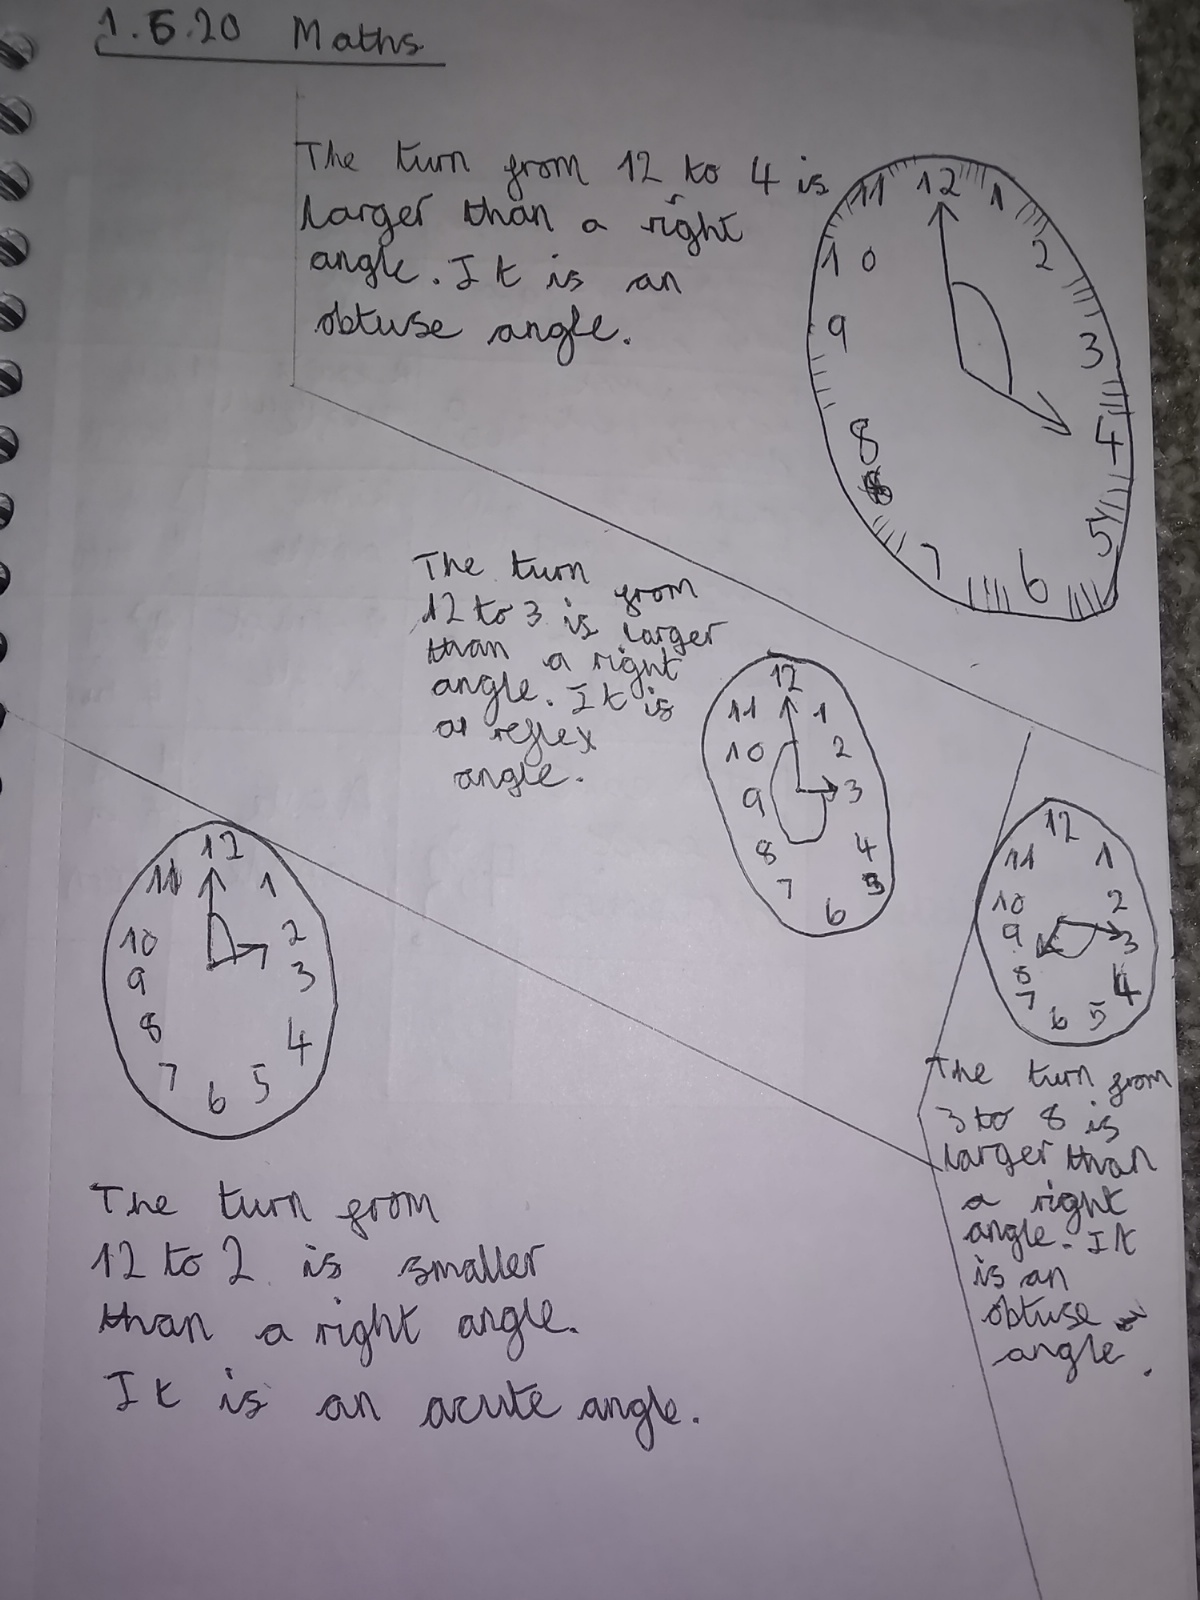 1.5.20 Maths
The turn from 12 to 4 is
larger than a right
angle. It is an
obtuse angle.
11 12 1
10 2
9 3
8 4
7 6 5
The turn from
12 to 3 is larger
than a right
angle. It is
a reflex
angle.
12
11 1
10 2
9 3
8 4
7 5
6
12
11 1
10 2
9 3
8 4
7 5
6
The turn from
3 to 8 is
larger than
a right
angle. It
is an
obtuse
angle.
12
11 1
10 2
9 3
8 4
7 5
6
The turn from
12 to 2 is smaller
than a right angle.
It is an acute angle.